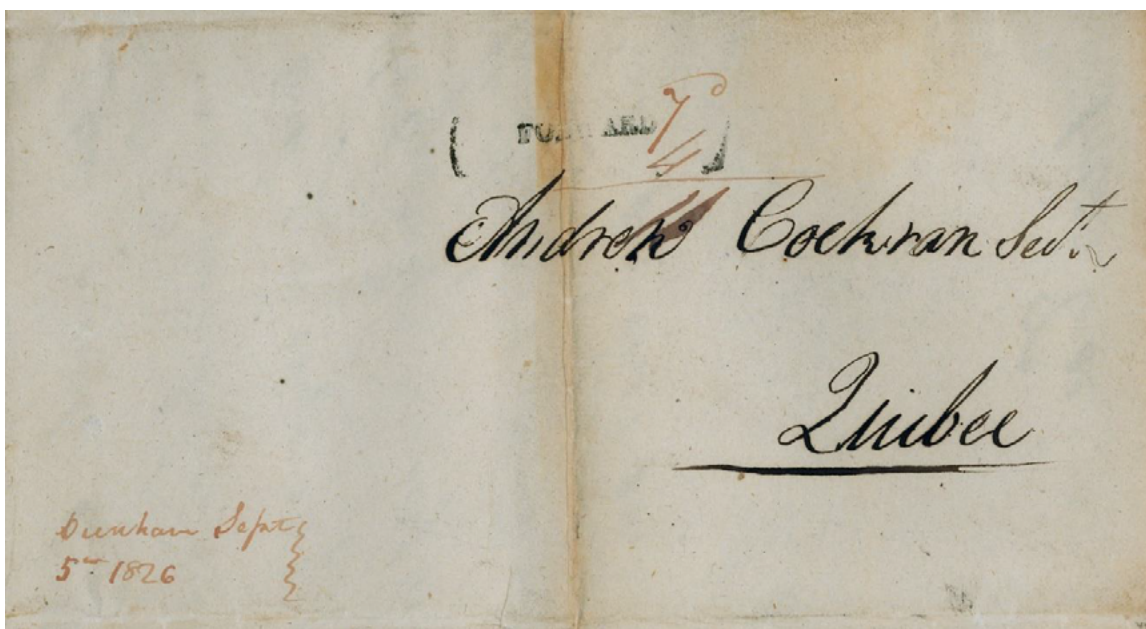 FORWARD
7d
4
Andrew Cochran Sect.
Quibec
Dunham Sept
5th 1826